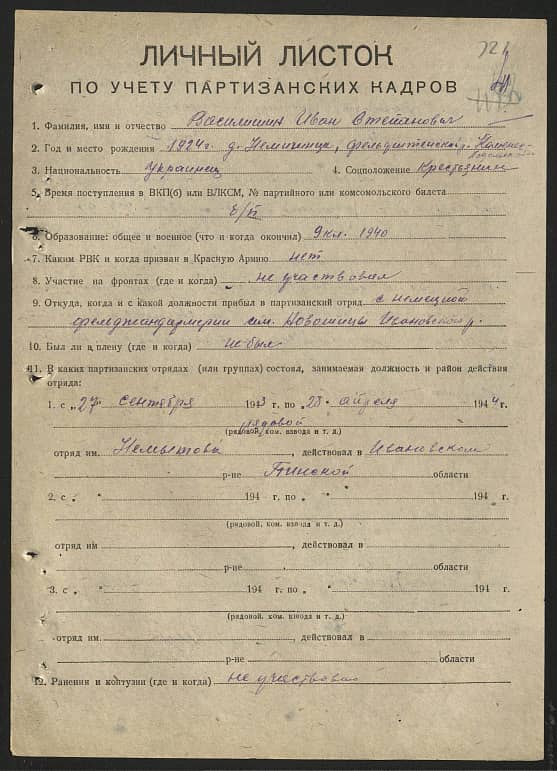 ЛИЧНЫЙ ЛИСТОК
ПО УЧЕТУ ПАРТИЗАНСКИХ КАДРОВ
1. Фамилия, имя и отчество Василишин Иван Степанович
2. Год и место рождения 1924 г. д. Немичинцы, фельдштенский р. Каменец-
Подольской
3. Национальность Украинец 4. Соцположение Крестьянин
5. Время поступления в ВКП(б) или ВЛКСМ, № партийного или комсомольского билета
б/п
6. Образование: общее и военное (что и когда окончил) 9 кл. 1940
7. Каким РВК и когда призван в Красную Армию нет
8. Участие на фронтах (где и когда) не участвовал
9. Откуда, когда и с какой должности прибыл в партизанский отряд с немецкой
фельджандармерии ст. Новошицы Ивановской р.
10. Был ли в плену (где и когда) не был
11. В каких партизанских отрядах (или группах) состоял, занимаемая должность и район действия
отряда:
1. с „27 сентября 1943 г. по „25 апреля 1944 г.
рядовой
(рядовой, ком. взвода и т. д.)
отряд им. Немытова, действовал в Ивановском
р-не Пинской области
2. с „ “ 194 г. по „ “ 194 г.
(рядовой, ком. взвода и т. д.)
отряд им, действовал в
р-не области
3. с „ “ 194 г. по „ “ 194 г.
(рядовой, ком. взвода и т. д.)
отряд им., действовал в
р-не области
12. Ранения и контузии (где и когда) не участвовал